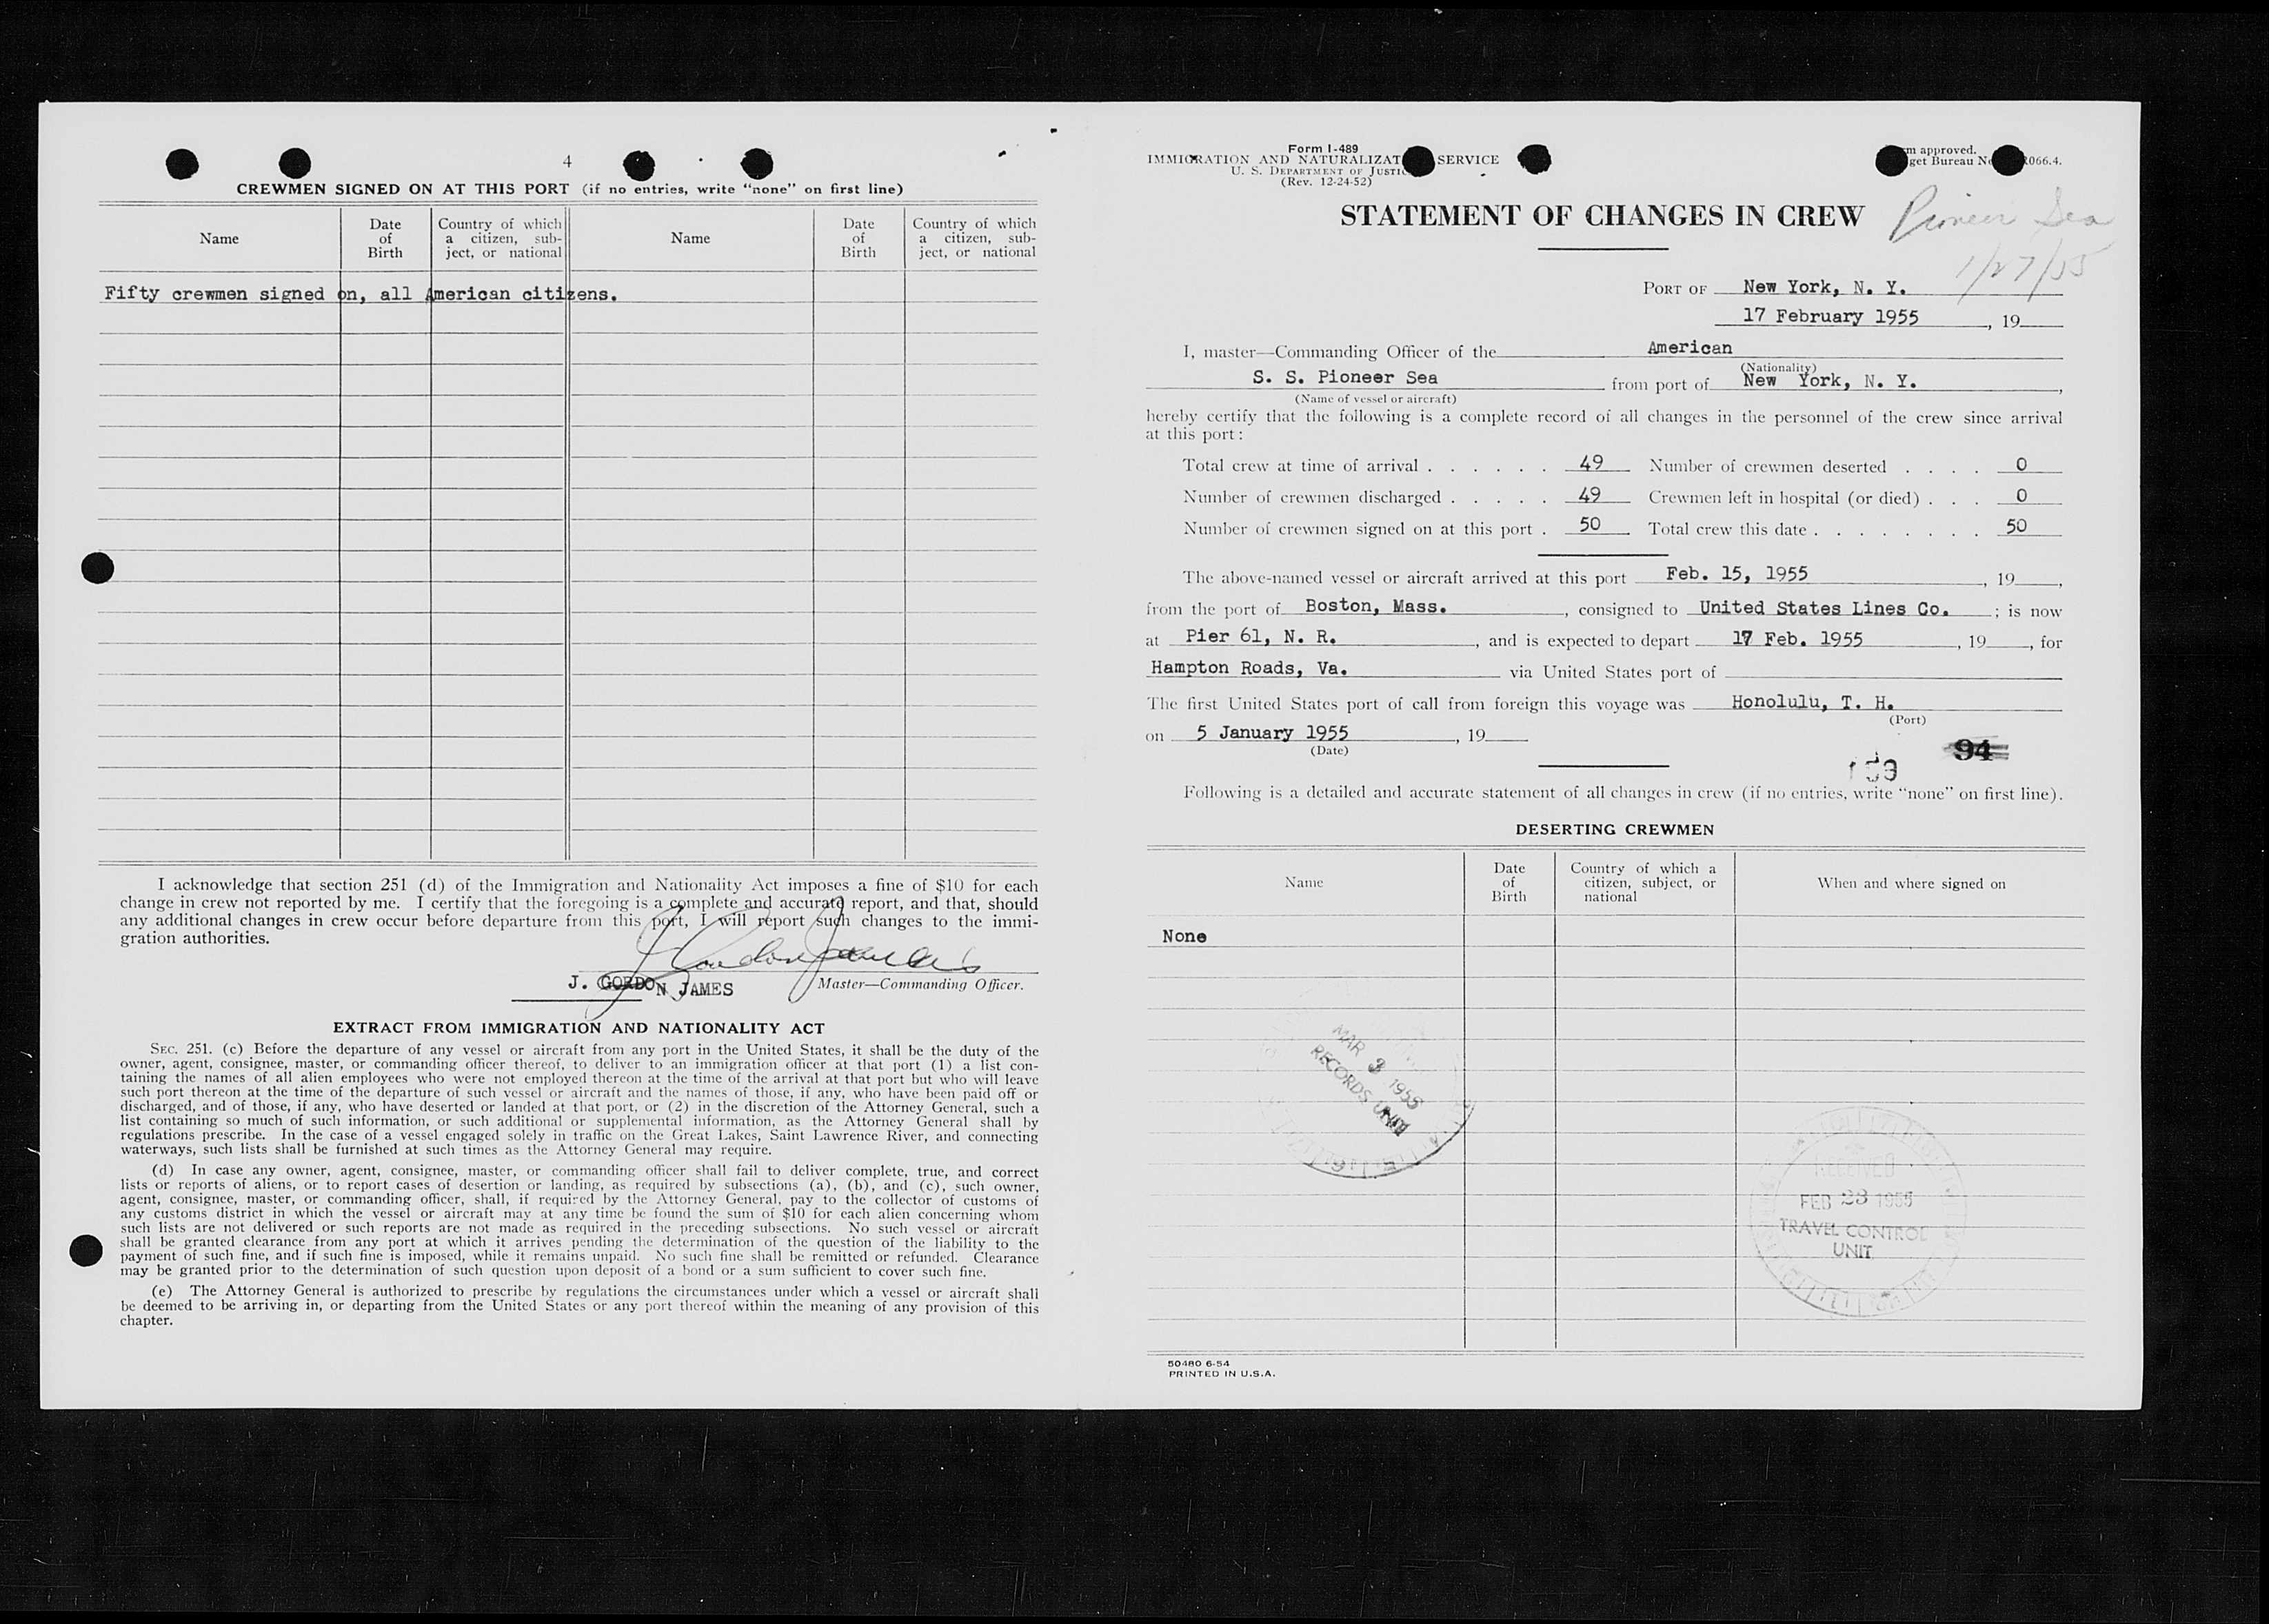 4
CREWMEN SIGNED ON AT THIS PORT (if no entries, write “none” on first line)
Name
Date
of
Birth
Country of which
a citizen, sub-
ject, or national
Name
Date
of
Birth
Country of which
a citizen, sub-
ject, or national
Fifty crewmen signed on, all American citizens.
I acknowledge that section 251 (d) of the Immigration and Nationality Act imposes a fine of $10 for each
change in crew not reported by me. I certify that the foregoing is a complete and accurate report, and that, should
any additional changes in crew occur before departure from this port, I will report such changes to the immi-
gration authorities.
J Gordon James
J. GORDON JAMES Master—Commanding Officer.
EXTRACT FROM IMMIGRATION AND NATIONALITY ACT
SEC. 251. (c) Before the departure of any vessel or aircraft from any port in the United States, it shall be the duty of the
owner, agent, consignee, master, or commanding officer thereof, to deliver to an immigration officer at that port (1) a list con-
taining the names of all alien employees who were not employed thereon at the time of the arrival at that port but who will leave
such port thereon at the time of the departure of such vessel or aircraft and the names of those, if any, who have been paid off or
discharged, and of those, if any, who have deserted or landed at that port, or (2) in the discretion of the Attorney General, such a
list containing so much of such information, or such additional or supplemental information, as the Attorney General shall by
regulations prescribe. In the case of a vessel engaged solely in traffic on the Great Lakes, Saint Lawrence River, and connecting
waterways, such lists shall be furnished at such times as the Attorney General may require.
(d) In case any owner, agent, consignee, master, or commanding officer shall fail to deliver complete, true, and correct
lists or reports of aliens, or to report cases of desertion or landing, as required by subsections (a), (b), and (c), such owner,
agent, consignee, master, or commanding officer, shall, if required by the Attorney General, pay to the collector of customs of
any customs district in which the vessel or aircraft may at any time be found the sum of $10 for each alien concerning whom
such lists are not delivered or such reports are not made as required in the preceding subsections. No such vessel or aircraft
shall be granted clearance from any port at which it arrives pending the determination of the question of the liability to the
payment of such fine, and if such fine is imposed, while it remains unpaid. No such fine shall be remitted or refunded. Clearance
may be granted prior to the determination of such question upon deposit of a bond or a sum sufficient to cover such fine.
(e) The Attorney General is authorized to prescribe by regulations the circumstances under which a vessel or aircraft shall
be deemed to be arriving in, or departing from the United States or any port thereof within the meaning of any provision of this
chapter.
Form I-489
IMMIGRATION AND NATURALIZAT SERVICE
U. S. DEPARTMENT OF JUSTIC
(Rev. 12-24-52)
m approved.
get Bureau No 066.4.
STATEMENT OF CHANGES IN CREW
Pioneer Sea
1/27/55
PORT OF New York, N. Y.
17 February 1955, 19
I, master—Commanding Officer of the American
(Nationality)
S. S. Pioneer Sea from port of New York, N. Y.,
(Name of vessel or aircraft)
hereby certify that the following is a complete record of all changes in the personnel of the crew since arrival
at this port:
Total crew at time of arrival . . . . . . 49 Number of crewmen deserted . . . . 0
Number of crewmen discharged . . . . . 49 Crewmen left in hospital (or died) . . . 0
Number of crewmen signed on at this port . 50 Total crew this date . . . . . . . . 50
The above-named vessel or aircraft arrived at this port Feb. 15, 1955, 19,
from the port of Boston, Mass., consigned to United States Lines Co.; is now
at Pier 61, N. R., and is expected to depart 17 Feb. 1955, 19, for
Hampton Roads, Va. via United States port of
The first United States port of call from foreign this voyage was Honolulu, T. H.
(Port)
on 5 January 1955, 19
(Date)
94
159
Following is a detailed and accurate statement of all changes in crew (if no entries, write “none” on first line).
DESERTING CREWMEN
Name
Date
of
Birth
Country of which a
citizen, subject, or
national
When and where signed on
None
MAR 3 1955
RECORDS UNIT
RECEIVED
FEB 23 1955
TRAVEL CONTROL
UNIT
50480 6-54
PRINTED IN U.S.A.